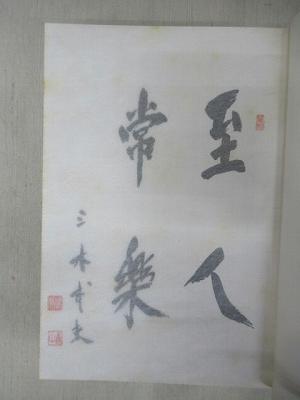 至人
常樂
三木武夫